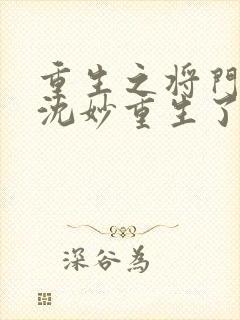 重生之将門
沈妙重生了
深谷為